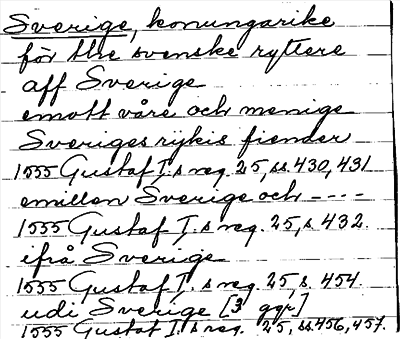 Sverige, konungarike
för the svenske ryttere
aff Sverige
emott våre och menige
Sveriges rijkis fiender
1555 Gustaf I.s reg. 25, ss. 430, 431
emillen Sverige och ----
1555 Gustaf I.s reg. 25, s. 432.
ifrå Sverige
1555 Gustaf I.s reg. 25, s. 454.
udi Sverige [3 ggr]
1555 Gustaf I.s reg. 25, ss. 456, 457.